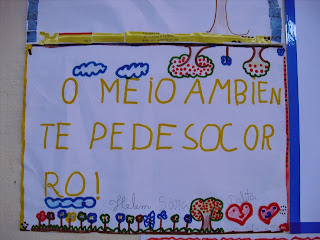 O MEIO AMBIEN
TE PEDE SOCOR
RO!
Helem